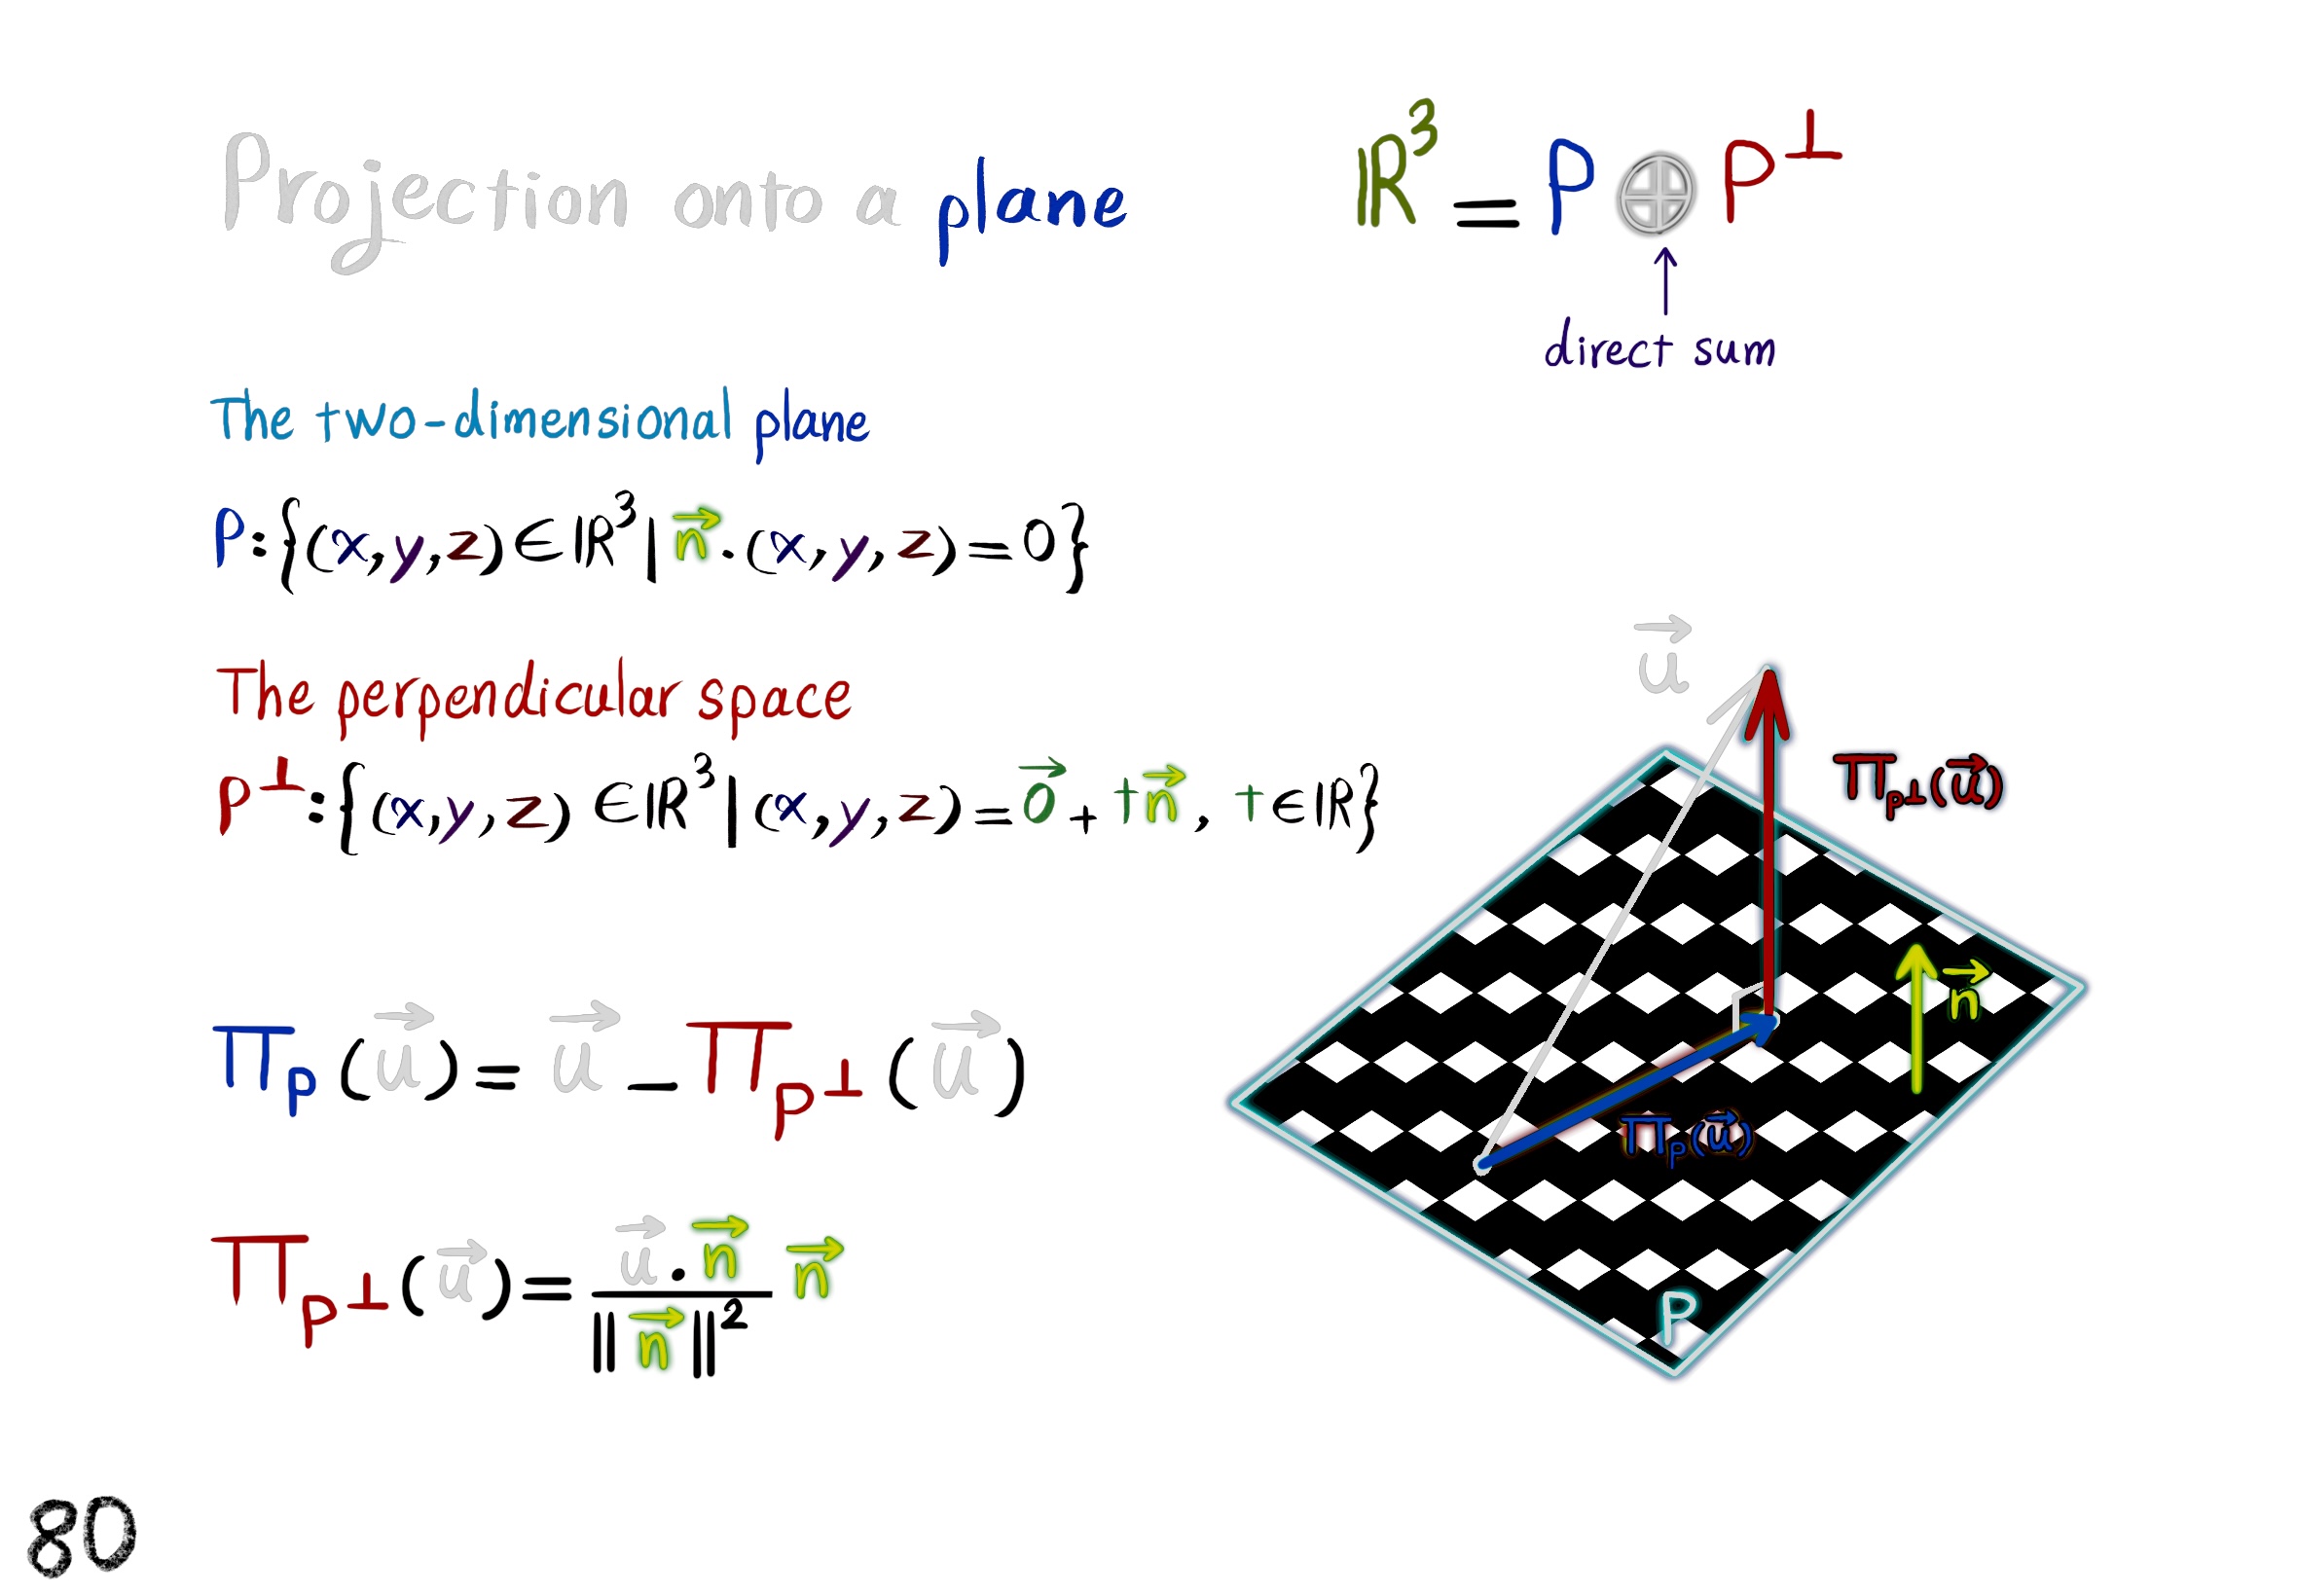 Projection onto a plane
ℝ³ = P ⊕ P⊥
direct sum
The two-dimensional plane
P:{(x,y,z)∈ℝ³|n⃗.(x,y,z)=0}
The perpendicular space
P⊥:{(x,y,z)∈ℝ³|(x,y,z)=0⃗+tn⃗, t∈ℝ}
Π_P(u⃗)=u⃗-Π_P⊥(u⃗)
Π_P⊥(u⃗)=(u⃗.n⃗)/‖n⃗‖² n⃗
u⃗
Π_P⊥(u⃗)
n⃗
Π_P(u⃗)
P
80